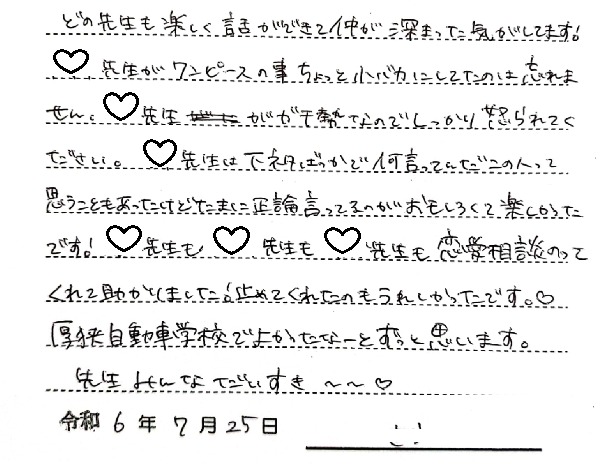 どの先生も楽しく話ができて仲が深まった気がしてます!
♡先生がワンピースの事ちょっと小バカにしてたのは忘れま
せん。♡先生がガチ勢なのでしっかり怒られてく
ださい。♡先生は下ネタばっかで何言ってんだこの人って
思うこともあったけどたまに正論言ってるのがおもしろくて楽しかった
です!♡先生も♡先生も♡先生も恋愛相談のって
くれて助かりました!止めてくれたのもうれしかったです。♡
厚狭自動車学校でよかったなーとずっと思います。
先生みんなだいすき〜〜♡
令和6年7月25日